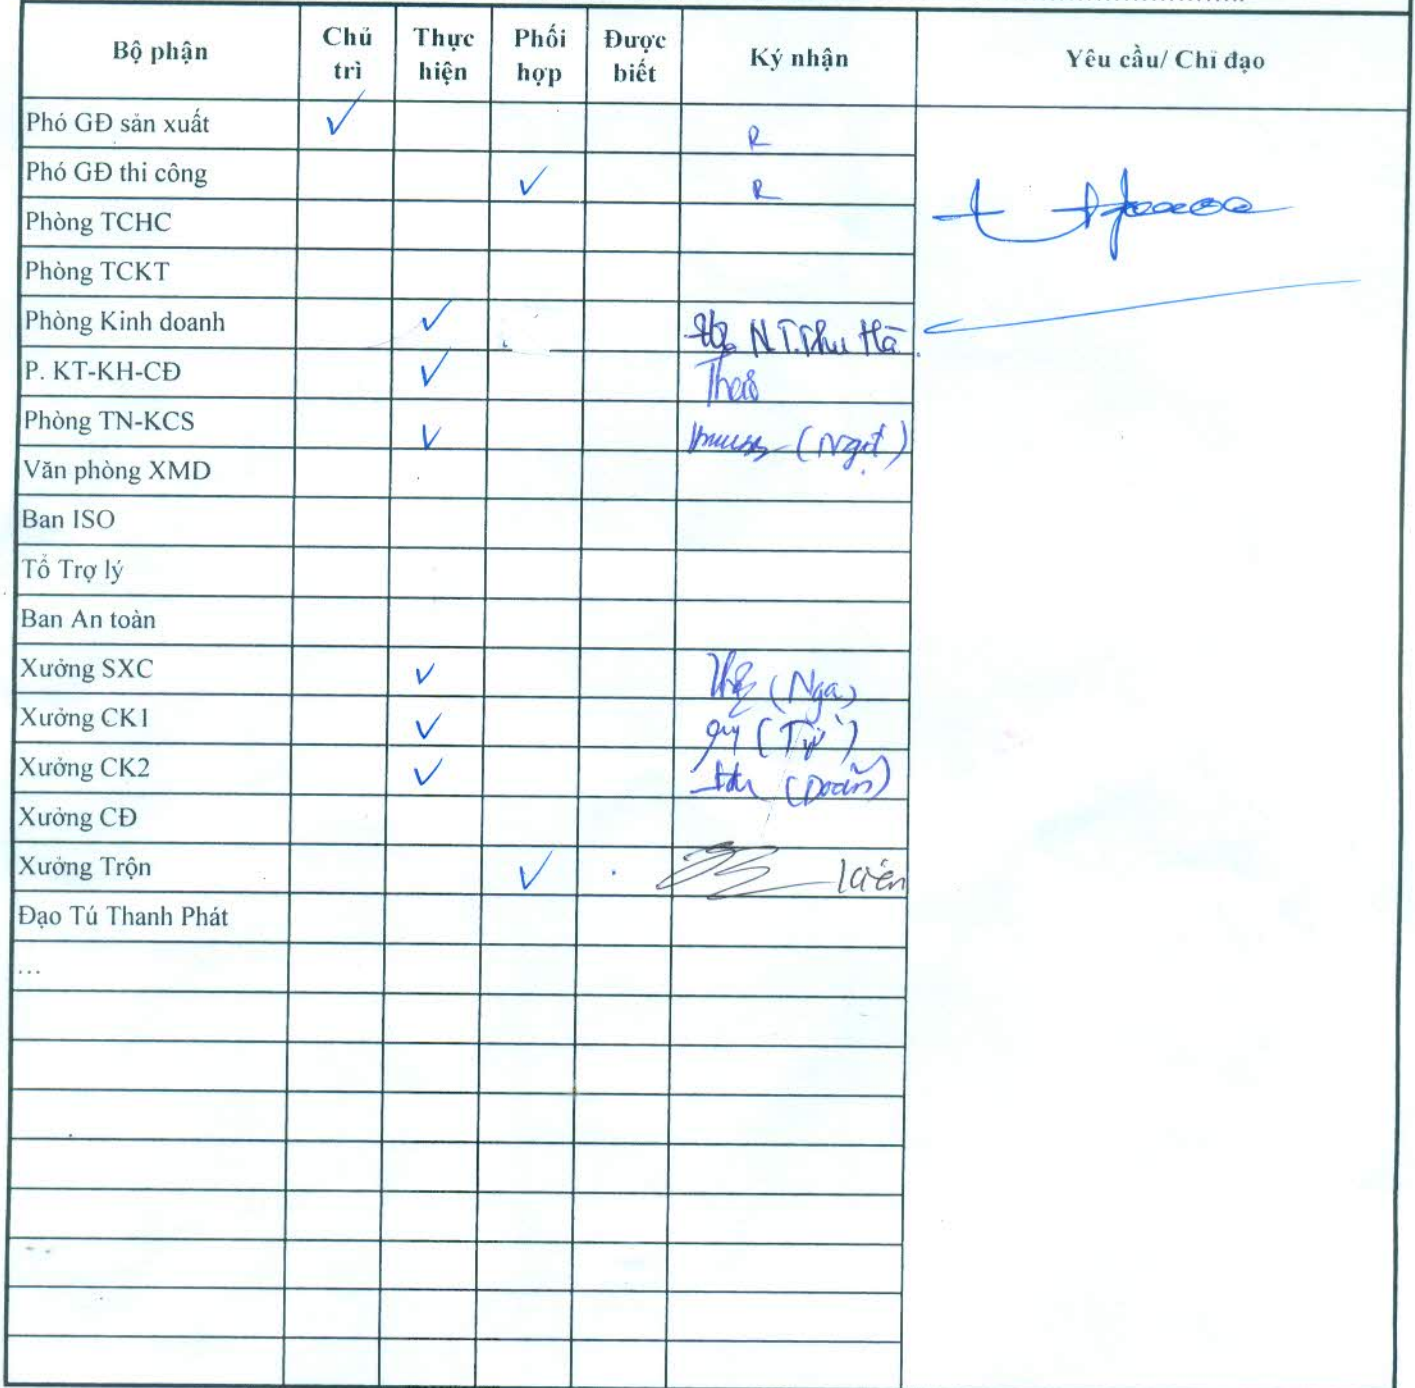 Bộ phận Chủ trì Thực hiện Phối hợp Được biết Ký nhận Yêu cầu/ Chỉ đạo
Phó GĐ sản xuất ✓ R
Phó GĐ thi công ✓ R
Phòng TCHC
Phòng TCKT
Phòng Kinh doanh ✓ N.T.Thu Hà
P. KT-KH-CĐ ✓
Phòng TN-KCS ✓
Văn phòng XMD
Ban ISO
Tổ Trợ lý
Ban An toàn
Xưởng SXC ✓ (Nga)
Xưởng CK1 ✓
Xưởng CK2 ✓ (Doãn)
Xưởng CĐ
Xưởng Trộn ✓
Đạo Tú Thanh Phát
...